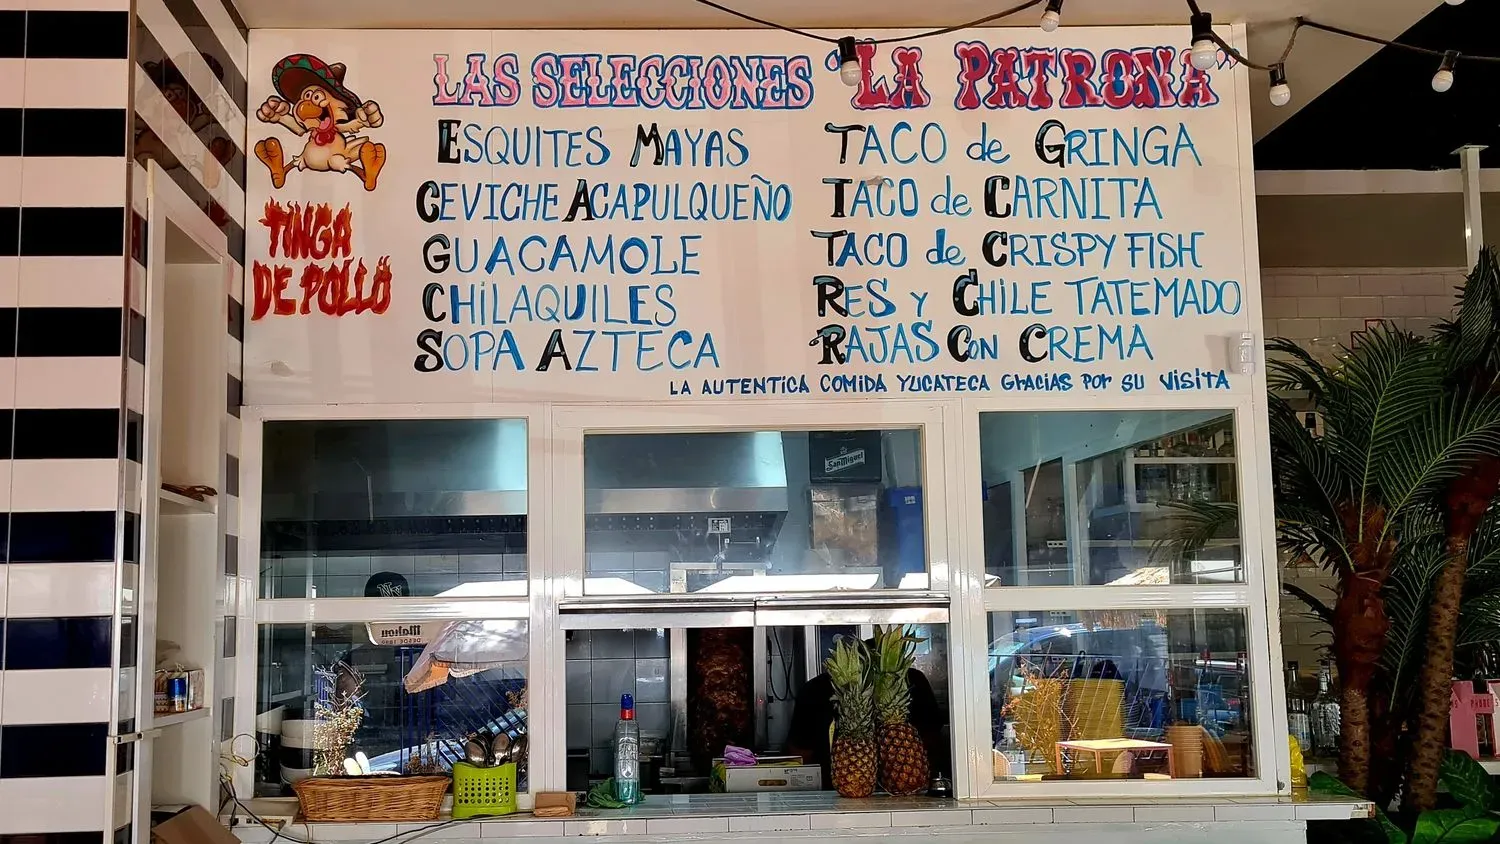 LAS SELECCIONES "LA PATRONA"
TINGA
DE POLLO
ESQUITES MAYAS
CEVICHE ACAPULQUEÑO
GUACAMOLE
CHiLAQUILES
SOPA AZTECA
TACO de GRINGA
TACO de CARNITA
TACO de CRISPY FISH
RES Y CHILE TATEMADO
RAJAS CoN CREMA
LA AUTENTICA COMIDA YUCATECA GrACiAS POr SU VisitA
SanMiguel
Mahou
DESDE 1890